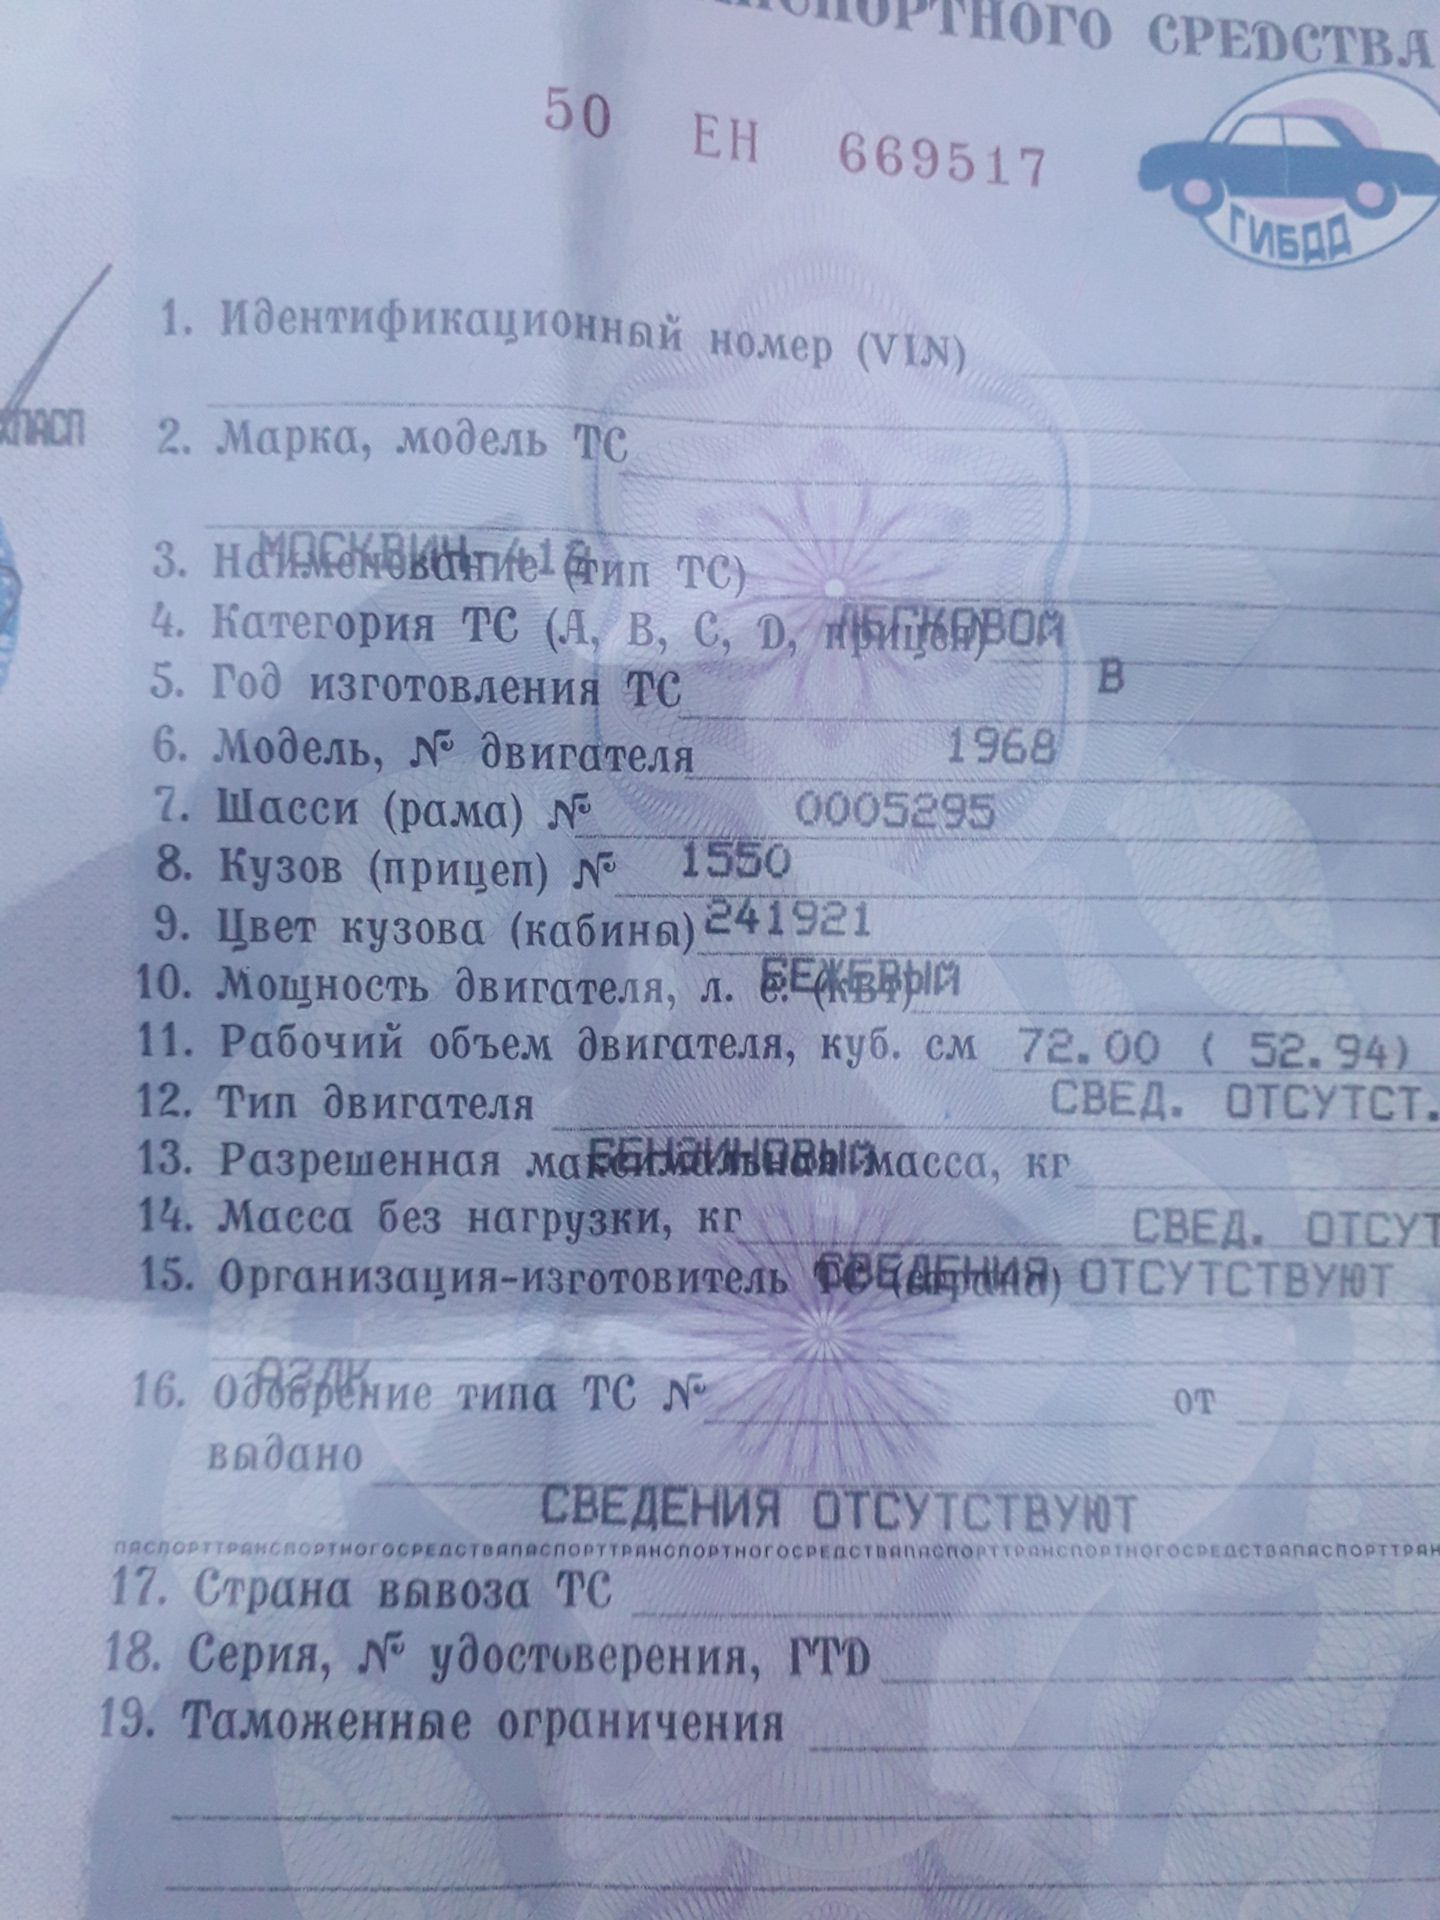 СРЕДСТВА
50 ЕН 669517
ГИБДД
1. Идентификационный номер (VIN)
2. Марка, модель ТС
МОСКВИЧ-412
3. Наименование (тип ТС)
ЛЕГКОВОЙ
4. Категория ТС (A, B, C, D, прицеп)
B
5. Год изготовления ТС
1968
6. Модель, № двигателя
0005295
7. Шасси (рама) №
1550
8. Кузов (прицеп) №
241921
9. Цвет кузова (кабины)
БЕЖЕВЫЙ
10. Мощность двигателя, л. с. (кВт)
72.00 ( 52.94)
11. Рабочий объем двигателя, куб. см
СВЕД. ОТСУТСТ.
12. Тип двигателя
БЕНЗИНОВЫЙ
13. Разрешенная максимальная масса, кг
СВЕД. ОТСУТ
14. Масса без нагрузки, кг
СВЕДЕНИЯ ОТСУТСТВУЮТ
15. Организация-изготовитель ТС (страна)
АЗЛК
16. Одобрение типа ТС № от
выдано
СВЕДЕНИЯ ОТСУТСТВУЮТ
ПАСПОРТТРАНСПОРТНОГОСРЕДСТВАПАСПОРТТРАНСПОРТНОГОСРЕДСТВАПАСПОРТТРАНСПОРТНОГОСРЕДСТВАПАСПОРТТРАН
17. Страна вывоза ТС
18. Серия, № удостоверения, ГТD
19. Таможенные ограничения